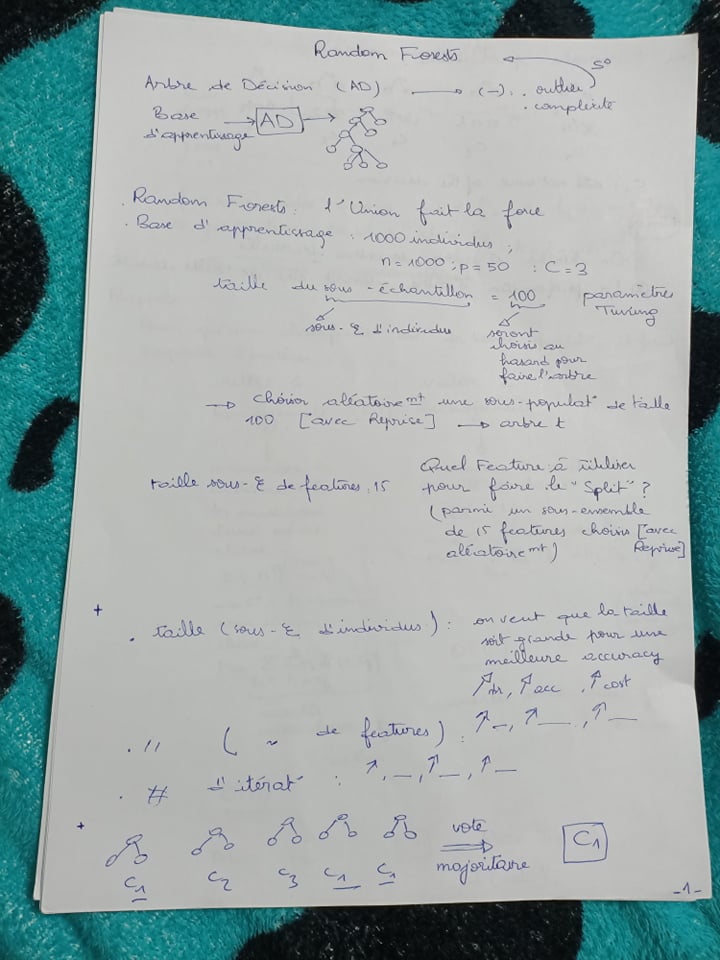 Random Forests
S°
Arbre de Décision (AD) → (-) : . outlier
. complexité
Base d'apprentissage → AD →
. Random Forests : l'Union fait la force
. Base d'apprentissage : 1000 individus ;
n = 1000 ; p = 50 : C = 3
taille du sous-échantillon = 100 paramètres Tuning
sous-E d'individus
seront
choisis au
hasard pour
faire l'arbre
→ choisir aléatoiremt une sous-populat° de taille
100 [avec Reprise] → arbre t
taille sous-E de features : 15
Quel Feature à utiliser
pour faire le "Split" ?
(parmi un sous-ensemble
de 15 features choisis [avec
aléatoiremt) Reprise]
+
. taille (sous-E d'individus) : on veut que la taille
soit grande pour une
meilleure accuracy
↗ , ↗ acc , ↗ cost
. // ( ~ de features) : ↗ — , ↗ — , ↗ —
. # d'itérat° : ↗ , — , ↗ — , ↗ —
+
vote
majoritaire
⇒ C1
C1 C2 C3 C1 C1
-1-